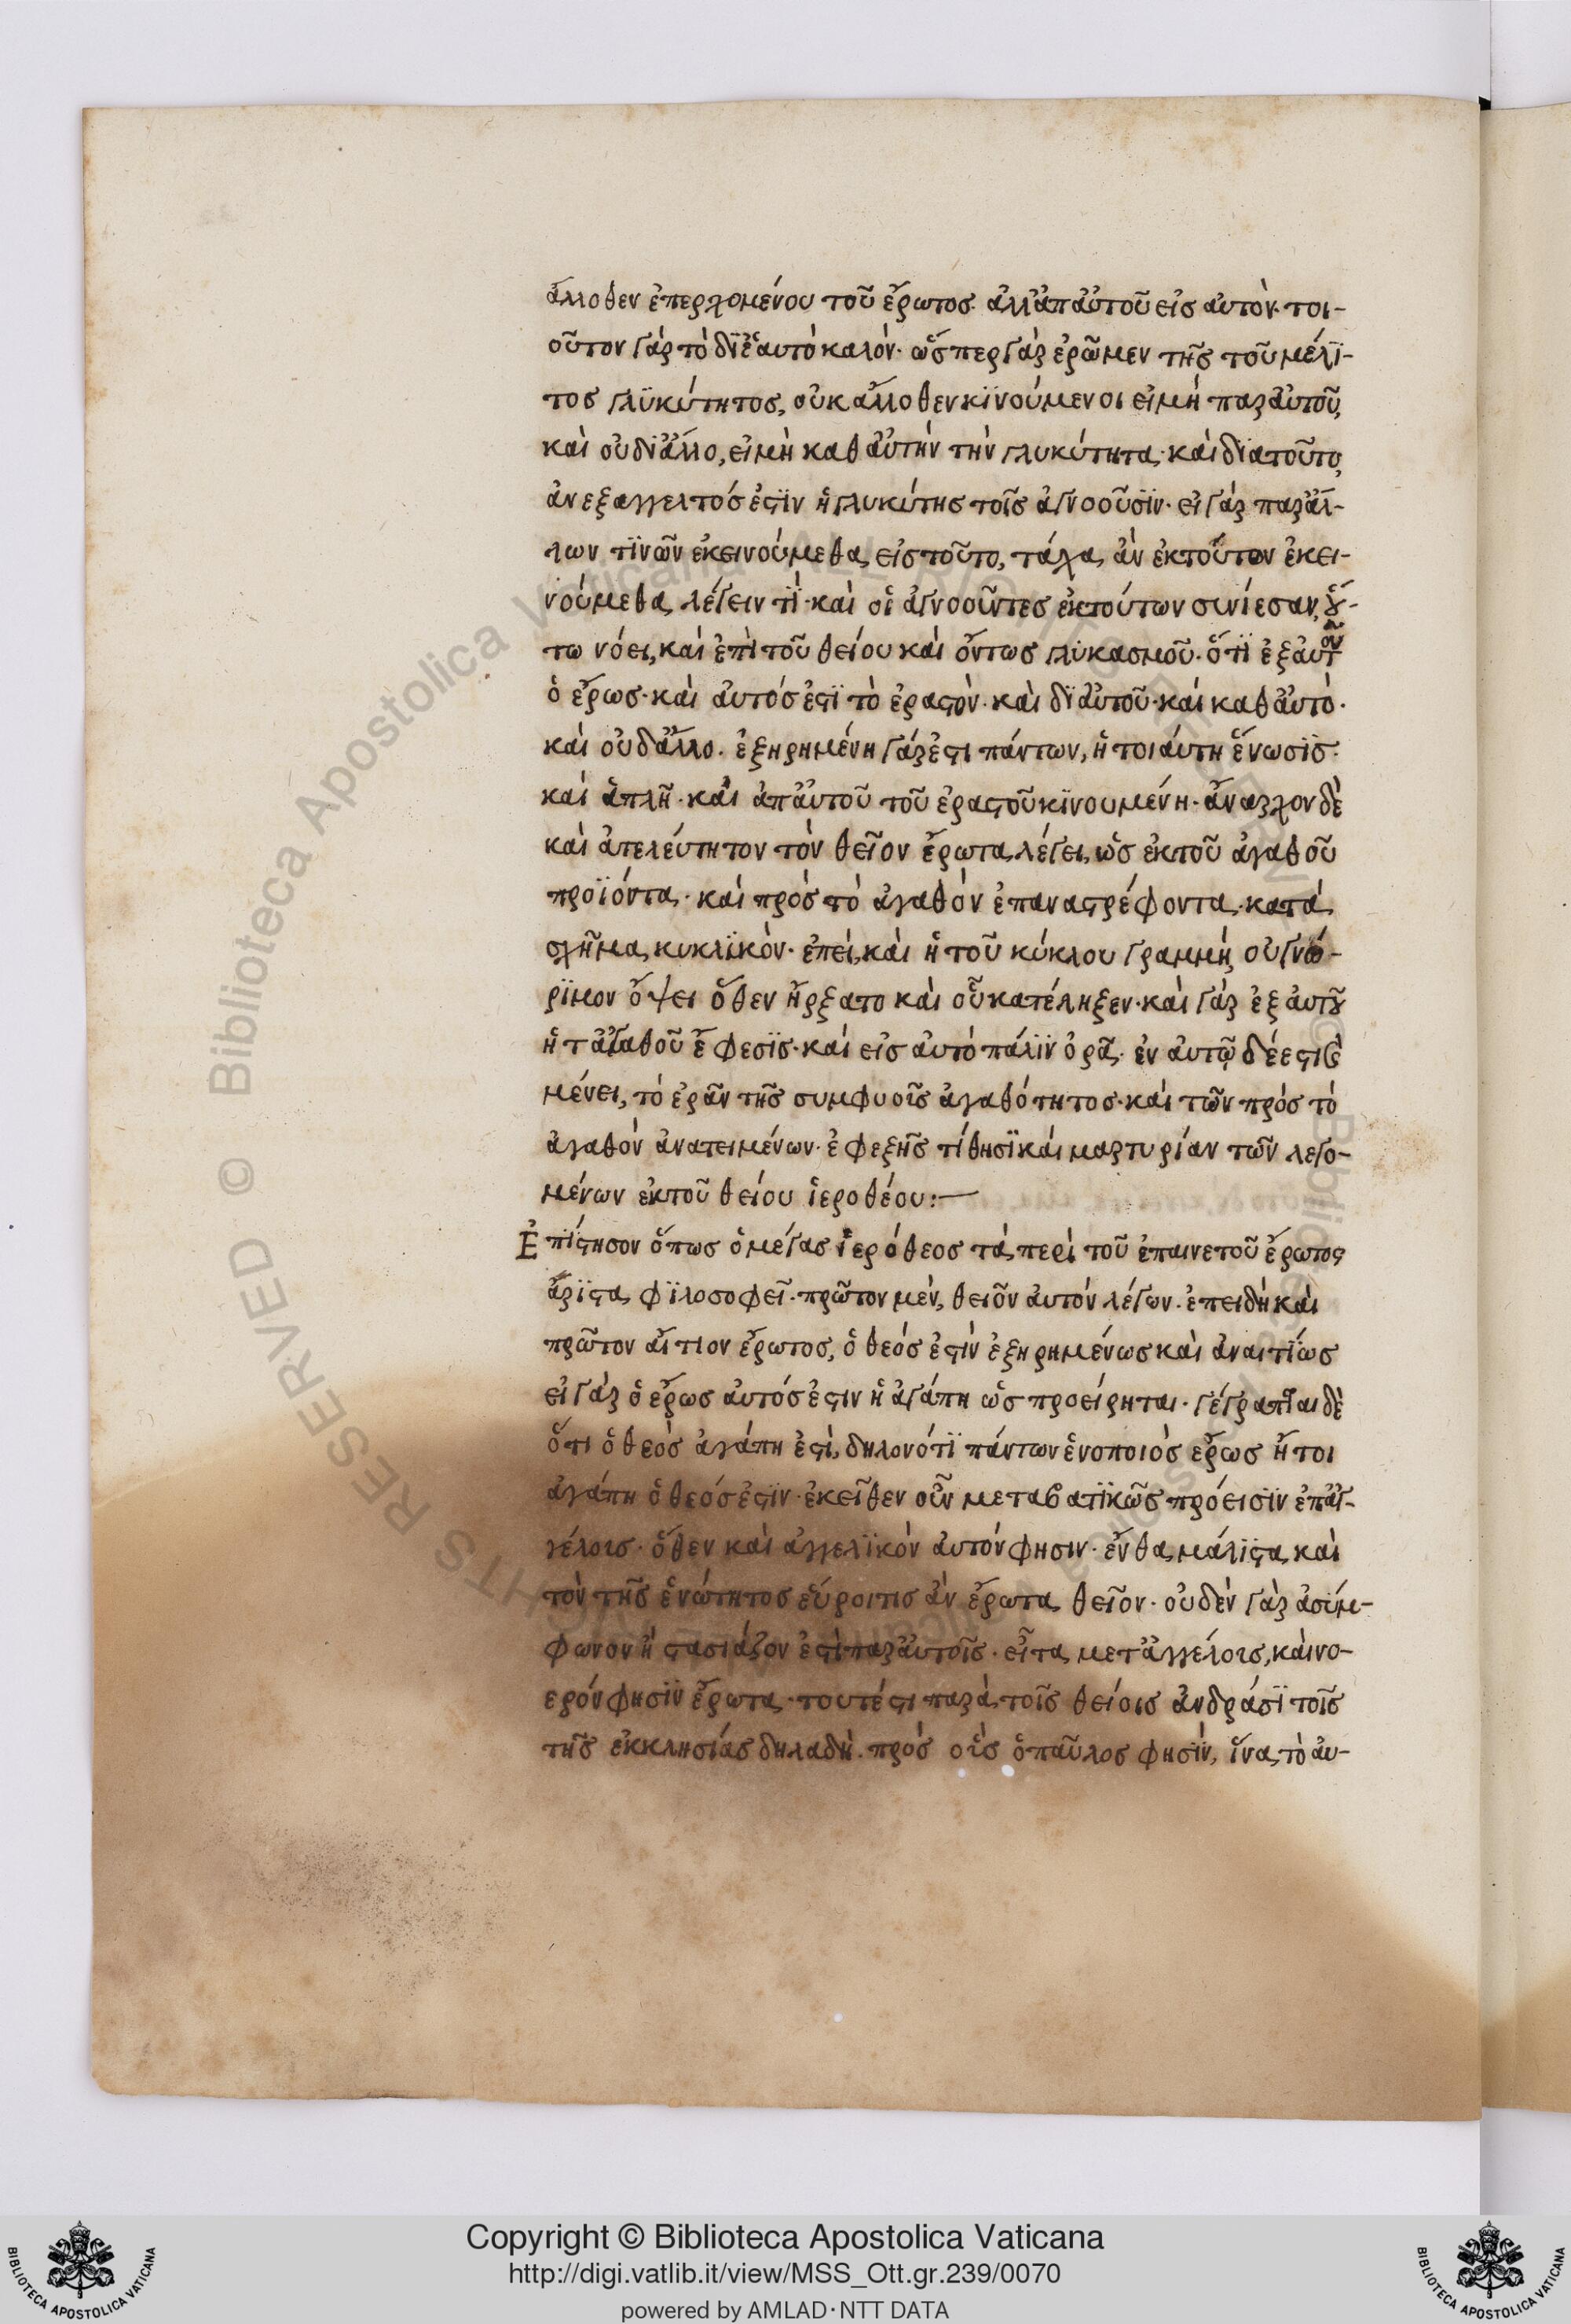 ἄλλοθεν ἐπερχομένου τοῦ ἔρωτος· ἀλλ' ἀπ' αὐτοῦ εἰς αὐτόν· τοι-
οῦτον γὰρ τὸ δι' ἑαυτὸ καλόν· ὥσπερ γὰρ ἐρῶμεν τῆς τοῦ μέλϊ-
τος γλϋκύτητος, οὐκ ἄλλοθεν κϊνούμενοι εἰ μὴ παρ' αὐτοῦ,
καὶ οὐ δι' ἄλλο, εἰ μὴ καθ' αὑτὴν τὴν γλυκύτητα· καὶ διὰ τοῦτο,
ἀνεξαγγελτός ἐστϊν ἡ γλυκύτης τοῖς ἀγνοοῦσϊν· εἰ γὰρ παρ' ἄλ-
λων τϊνῶν ἐκεινούμεθα εἰς τοῦτο, τάχα ἂν ἐκ τούτων ἐκει-
νούμεθα λέγειν τΐ· καὶ οἱ ἀγνοοῦντες ἐκ τούτων συνίεσαν, οὕ-
τω νόει, καὶ ἐπὶ τοῦ θείου καὶ ὄντως γλυκασμοῦ· ὅτϊ ἐξ αὐτοῦ
ὁ ἔρως· καὶ αὐτός ἐστϊ τὸ ἐραστὸν· καὶ δϊ' αὐτοῦ· καὶ καθ' αὑτὸ·
καὶ οὐδ' ἄλλο· ἐξηρημένη γάρ ἐστι πάντων, ἡ τοιαύτη ἕνωσϊς·
καὶ ἁπλῆ· καὶ ἀπ' αὐτοῦ τοῦ ἐραστοῦ κϊνουμένη· ἄναρχον δὲ
καὶ ἀτελεύτητον τὸν θεῖον ἔρωτα λέγει, ὡς ἐκ τοῦ ἀγαθοῦ
προϊόντα· καὶ πρὸς τὸ ἀγαθὸν ἐπαναστρέφοντα· κατὰ
σχῆμα κυκλϊκὸν· ἐπεὶ, καὶ ἡ τοῦ κύκλου γραμμὴ, οὐ γνώ-
ρϊμον ὄψει ὅθεν ἤρξατο καὶ οὗ κατέληξεν· καὶ γὰρ ἐξ αὐτοῦ
ἡ τἀγαθοῦ ἔφεσϊς· καὶ εἰς αὐτὸ πάλϊν ὁρᾷ· ἐν αὐτῷ δέ ἐστι καὶ
μένει, τὸ ἐρᾶν τῆς συμφυοῖς ἀγαθότητος· καὶ τῶν πρὸς τὸ
ἀγαθὸν ἀνατειμένων· ἐφεξῆς τίθησϊ καὶ μαρτυρίαν τῶν λεγο-
μένων ἐκ τοῦ θείου ἱεροθέου:—
Ἐπίστησον ὅπως ὁ μέγας ἱερόθεος τὰ περὶ τοῦ ἐπαινετοῦ ἔρωτος
ἄρϊστα φϊλοσοφεῖ· πρῶτον μὲν, θεῖον αὐτὸν λέγων· ἐπειδὴ καὶ
πρῶτον αἴτιον ἔρωτος, ὁ θεός ἐστϊν ἐξηρημένως καὶ ἀναιτΐως
εἰ γὰρ ὁ ἔρως αὐτός ἐστιν ἡ ἀγάπη ὡς προείρηται· γέγραπται δὲ
ὅτι ὁ θεὸς ἀγάπη ἐστὶ, δηλονότϊ πάντων ἑνοποιὸς ἔρως ἤτοι
ἀγάπη ὁ θεός ἐστϊν· ἐκεῖθεν οὖν μεταβατϊκῶς πρόεισϊν ἐπ' ἀγ-
γέλοις· ὅθεν καὶ ἀγγελϊκὸν αὐτόν φησιν· ἔνθα μάλϊστα καὶ
τὸν τῆς ἑνότητος εὕροι τις ἂν ἔρωτα θεῖον· οὐδὲν γὰρ ἀσύμ-
φωνον ἢ στασιάζον ἐστὶ παρ' αὐτοῖς· εἶτα μετ' ἀγγέλοις, καὶ νο-
ερόν φησϊν ἔρωτα· τουτέστι παρὰ τοῖς θείοις ἀνδράσϊ τοῖς
τῆς ἐκκλησίας δηλαδὴ· πρὸς οἷς ὁ παῦλος φησϊν, ἵνα τὸ αὐ-
Copyright © Biblioteca Apostolica Vaticana
http://digi.vatlib.it/view/MSS_Ott.gr.239/0070
powered by AMLAD·NTT DATA